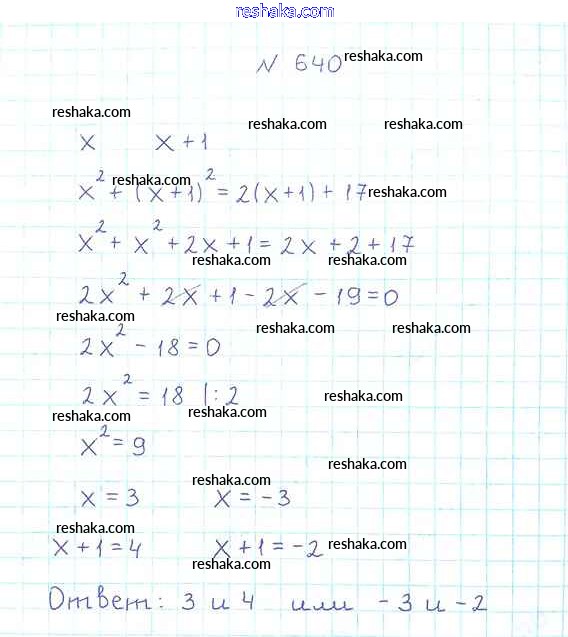 www.reshaka.com
N 640 reshaka.com
reshaka.com
reshaka.com reshaka.com
x x + 1
reshaka.com
x² + (x+1)² = 2(x+1) + 17 reshaka.com
x² + x² + 2x + 1 = 2x + 2 + 17
reshaka.com reshaka.com
2x² + 2x + 1 - 2x - 19 = 0
reshaka.com
reshaka.com reshaka.com
2x² - 18 = 0
2x² = 18 |: 2 reshaka.com
reshaka.com reshaka.com
x² = 9
reshaka.com
reshaka.com
x = 3 x = -3
reshaka.com
x + 1 = 4 x + 1 = -2 reshaka.com
reshaka.com
Ответ: 3 и 4 или -3 и -2